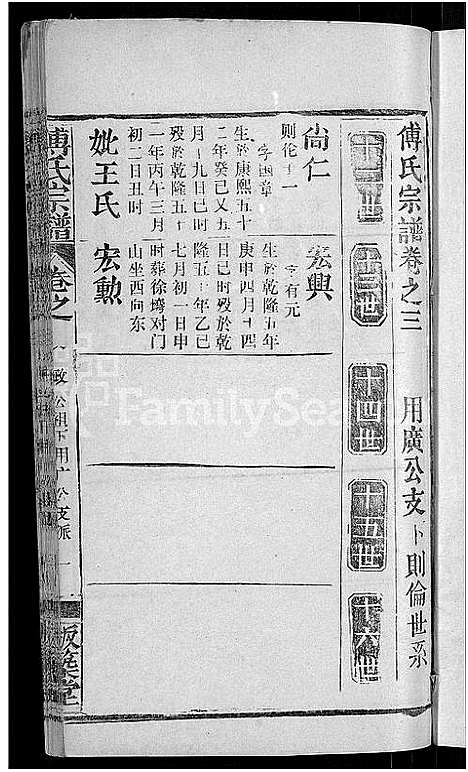 傅氏宗譜卷之三
用廣公支下則倫世系
十二世
十三世
十四世
十五世
十六世
尚仁
则伦子一
字國章
生於康熙五十
二年癸巳又五
月十九日巳时
殁於乾隆五十
一年丙午三月
初二日丑时
妣王氏
宏興
字有元
生於乾隆五年
庚申四月十四
日巳时殁於乾
隆五十年乙巳
七月初一日申
时葬徐塆对门
山坐西向东
宏勳
傅氏宗譜
卷之
政公祖下用广公支派
一
版築堂
FamilySea